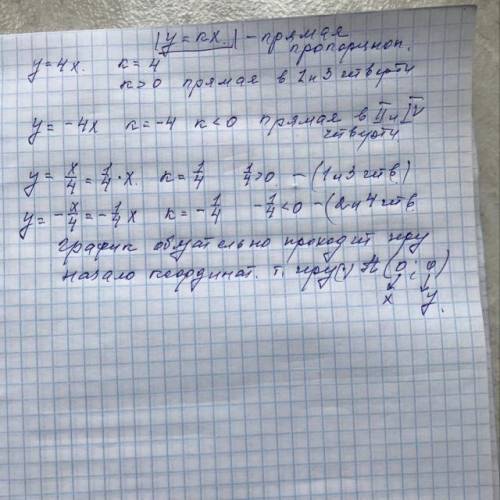 |y = кx.| - прямая
пропорцион.
y = 4x. к = 4
к > 0 прямая в 1 и 3 четверти
y = -4x к = -4 к < 0 прямая в II и IV
четверти
y = x/4 = 1/4 · x. к = 1/4 1/4 > 0 - (1 и 3 четв.)
y = -x/4 = -1/4 x к = -1/4 -1/4 < 0 - (2 и 4 четв.
график обязательно проходит чеړез
начало координат. т. A (0; 0)
x y.